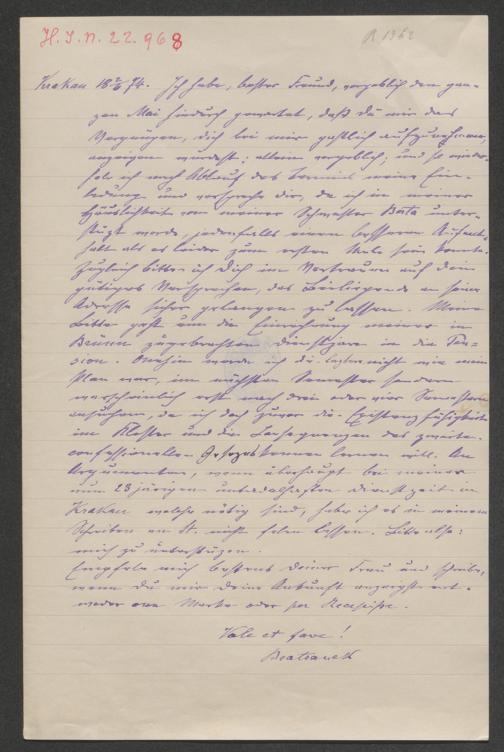 H. I. N. 22.968
R 1362
Krakau 18 5/6 74. Ich habe, bester Freund, vergeblich den gan-
zen Mai hindurch gewartet, daß du mir das
Vergnügen, dich bei mir gastlich aufzunehmen,
anzeigen würdest; allein vergeblich; und so wieder-
hole ich nach Ablauf des Termins meine Ein-
ladung und verspreche dir, da ich in meiner
Häuslichkeit von meiner Schwester Berta unter-
stützt werde, jedenfalls einen besseren Aufent-
halt als es leider zum ersten Male sein konnte.
Zugleich bitte ich Dich im Vertrauen auf dein
gütiges Versprechen, das Beiliegende an seine
Adresse sicher gelangen zu lassen. Meine
Bitte geht um die Einrechnung meiner in
Brünn zugebrachten Dienstjare in die Pen-
sion. Ohnehin werde ich die letztere nicht wie mein
Plan war, im nächsten Semester sondern
warscheinlich erst nach drei oder vier Semestern
ansuchen, da ich doch zuvor die Existenzfähigkeit
im Kloster und die Consequenzen des zweiten
confessionellen Gesezes kennen lernen will. An
Argumenten, wenn überhaupt bei meiner
nun 23 järigen untadelhaften Dienstzeit in
Krakau welche nötig sind, habe ich es in meinem
Schreiben an St. nicht felen lassen. Bitte also:
mich zu unterstüzen.
Empfele mich bestens deiner Frau und schreibe,
wenn du mir deine Ankunft anzeigst ent-
weder one Marke oder per Recepisse.
Vale et fave!
Bratranek